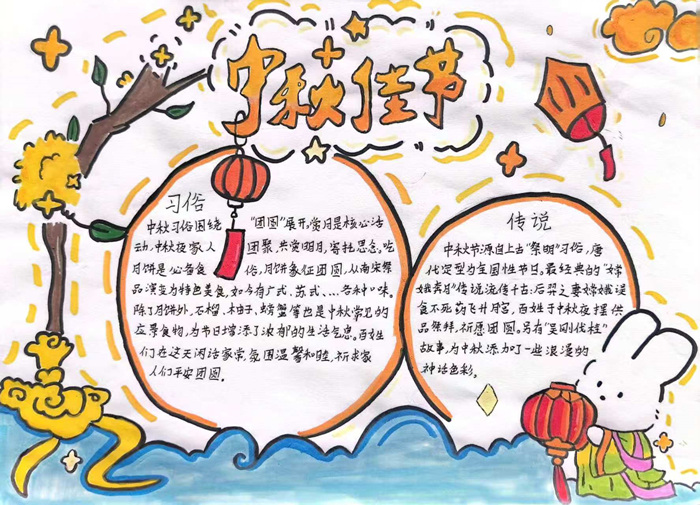 中秋佳节
习俗
中秋习俗围绕"团圆"展开,赏月是核心活
动,中秋夜家人团聚,共赏明月,寄托思念,吃
月饼是必备食俗,月饼象征团圆,从南宋祭
品演变为特色美食,如今有广式、苏式、...各种口味。
除了月饼外,石榴、柚子、螃蟹等也是中秋常见的
应景食物,为节日增添了浓郁的生活气息。百姓
们在这天闲话家常,氛围温馨和睦,祈求家
人们平安团圆。
传说
中秋节源自上古"祭明"习俗,唐
代定型为全国性节日。最经典的"嫦
娥奔月"传说流传千古:后羿之妻嫦娥误
食不死药飞升月宫,百姓于中秋夜摆供
品祭拜,祈愿团圆。另有"吴刚伐桂"
故事,为中秋添加了一些浪漫的
神话色彩。